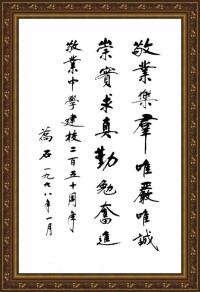 敬業樂羣唯嚴唯誠
崇實求真勤勉奮進
敬業中學建校二百五十周年
蒿石一九九八年一月